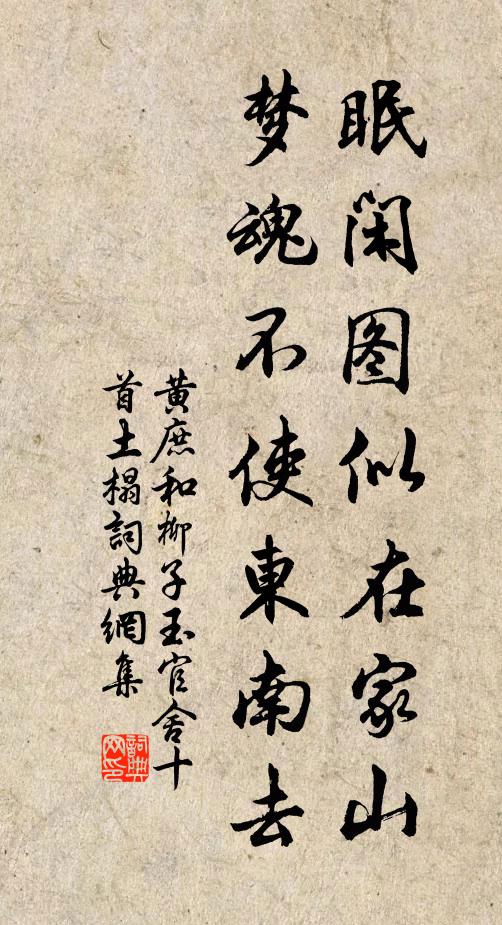 眠闲图似在家山
梦魂不使東南去
黄庶和柳子玉官舍十
首土榻詞典網集
詞典
网印